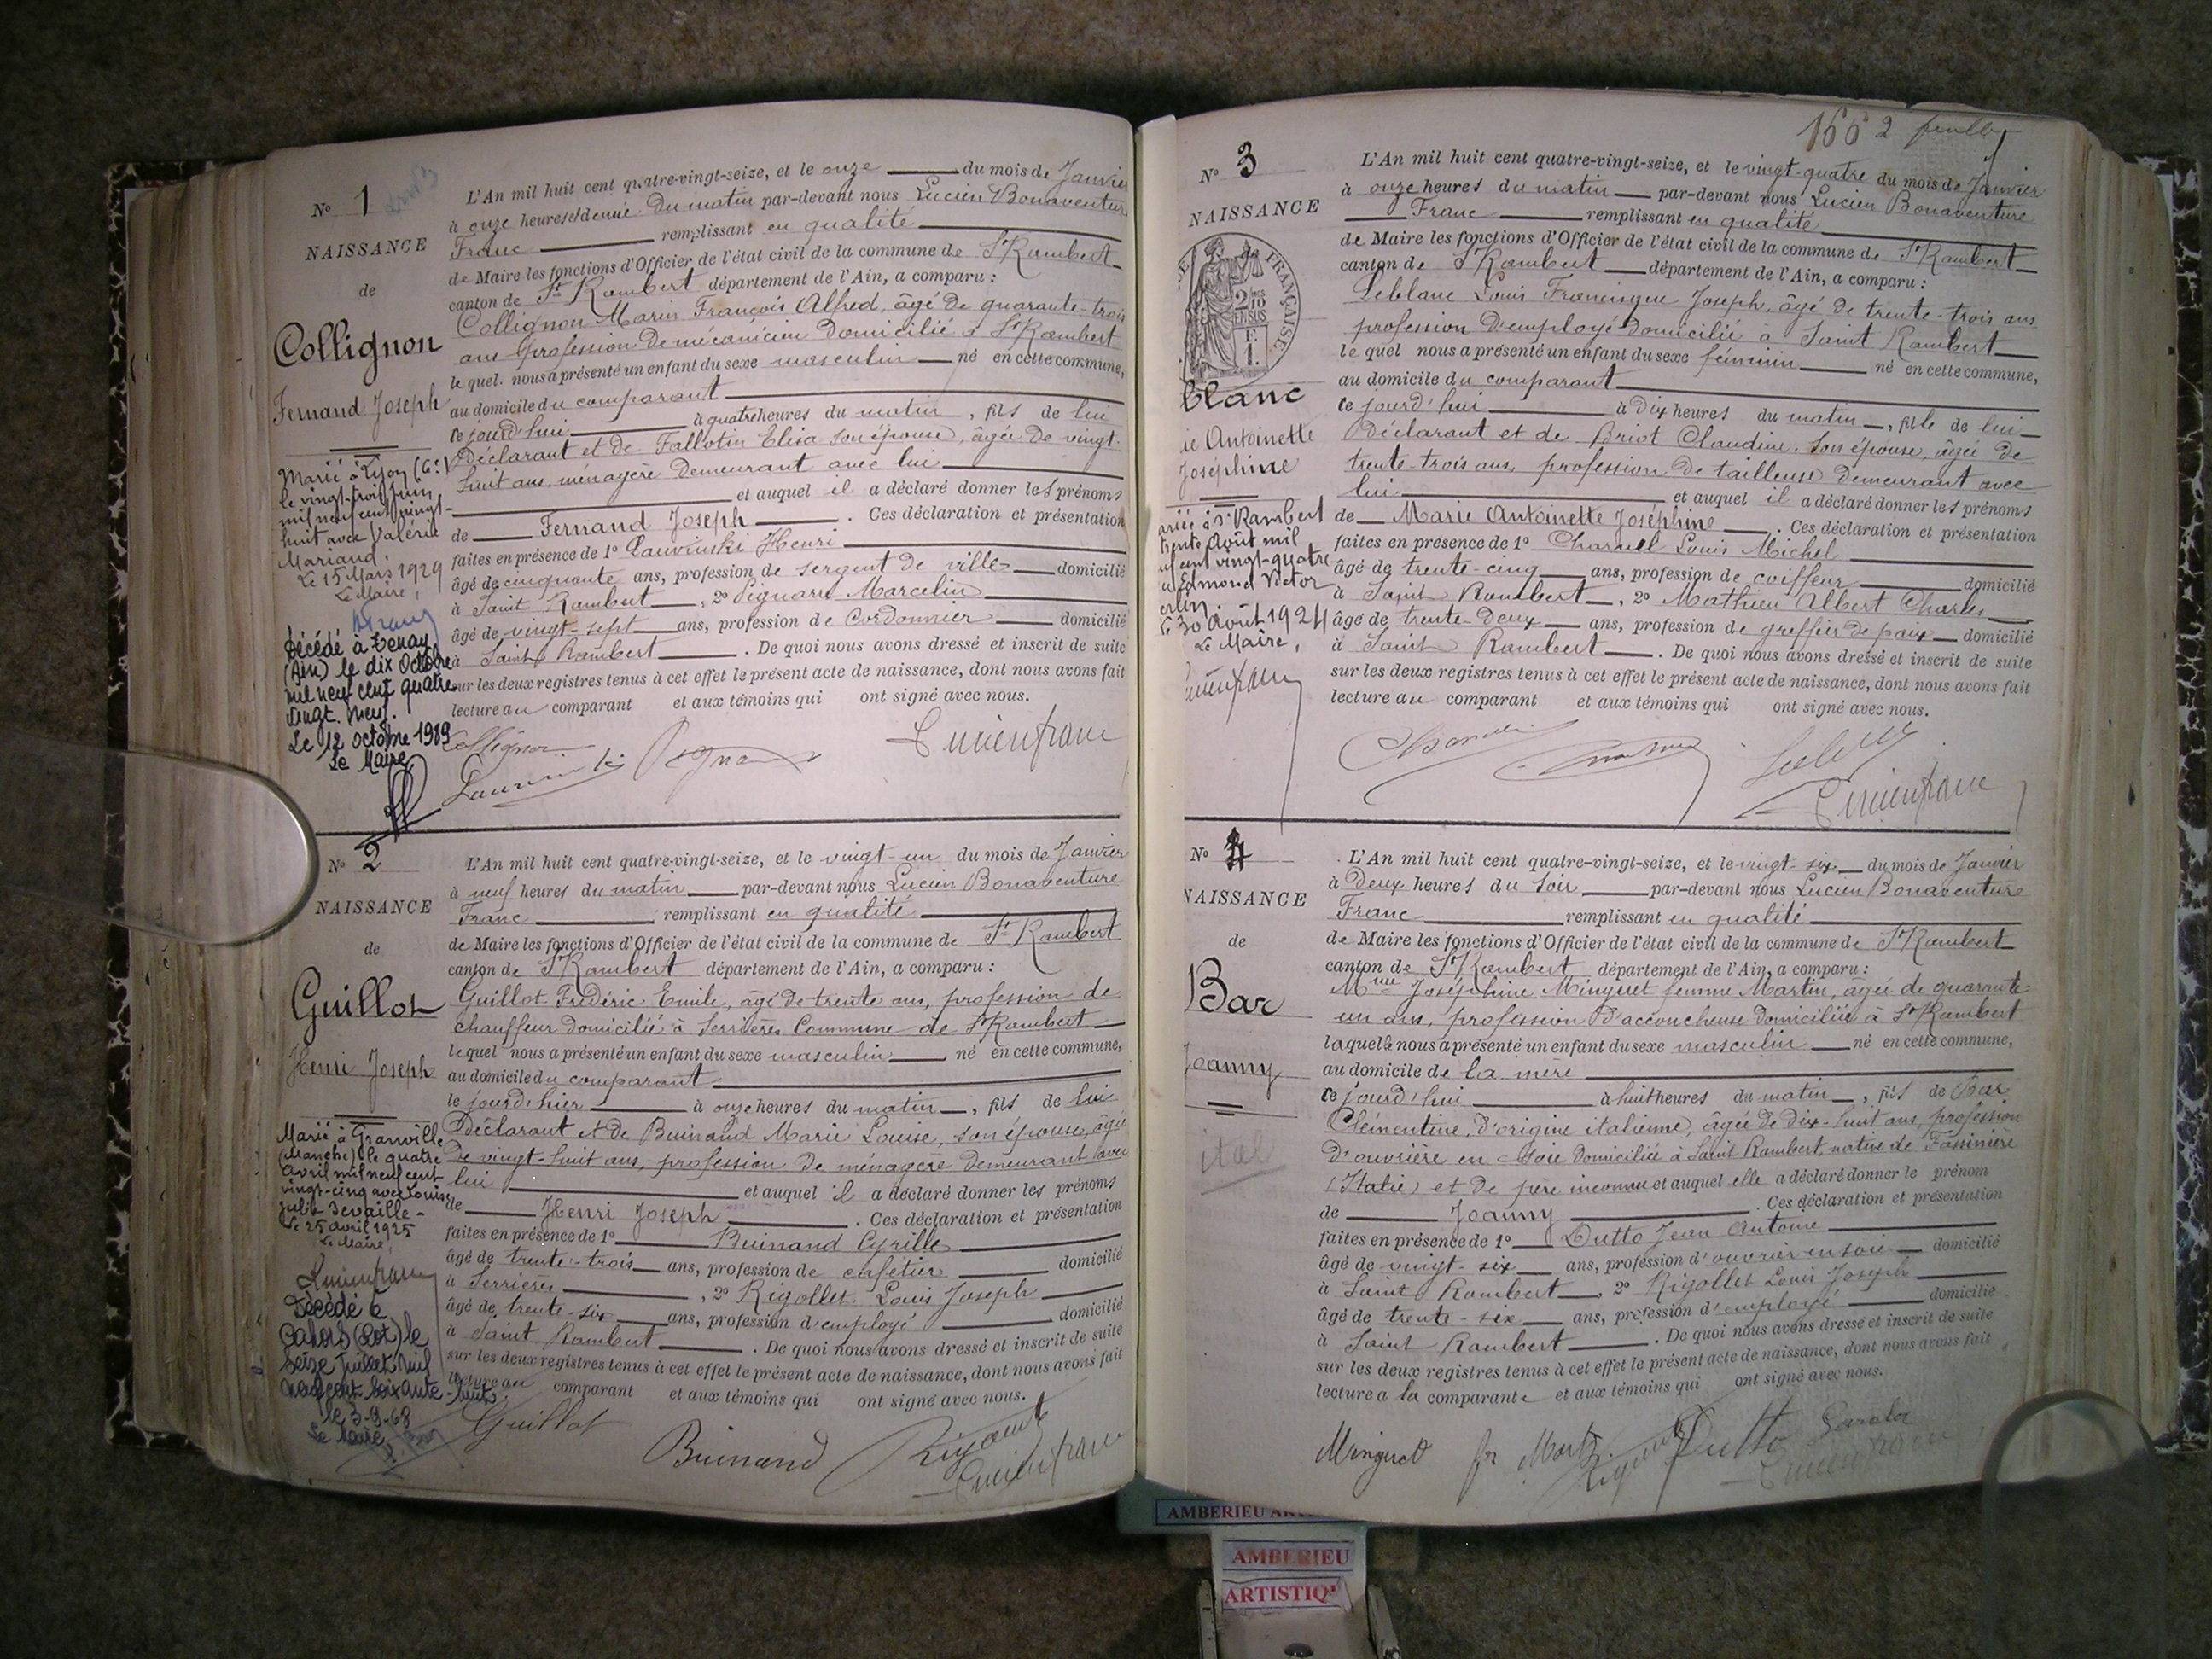 No 1
NAISSANCE
de
Collignon
Fernand Joseph
Marié à Lyon (6e)
le vingt-trois Juin
mil neuf cent vingt-
huit avec Valérie
Mariand.
Le 15 Mars 1929
Le Maire,
Décédé à Tenay
(Ain) le dix Octobre
mil neuf cent quatre
vingt neuf.
Le 12 octobre 1989
Le Maire
L'An mil huit cent quatre-vingt-seize, et le onze du mois de Janvier
à onze heures et demie du matin par-devant nous Lucien Bonaventure
Franc remplissant en qualité
de Maire les fonctions d'Officier de l'état civil de la commune de St Rambert
canton de St Rambert département de l'Ain, a comparu :
Collignon Marin François Alfred, âgé de quarante-trois
ans profession de mécanicien domicilié à St Rambert
le quel nous a présenté un enfant du sexe masculin né en cette commune,
au domicile du comparant
ce jourd'hui à quatre heures du matin, fils de lui
Déclarant et de Fallotin Elisa son épouse, âgée de vingt-
huit ans, ménagère demeurant avec lui
et auquel il a déclaré donner les prénoms
de Fernand Joseph. Ces déclaration et présentation
faites en présence de 1° Henri
âgé de cinquante ans, profession de sergent de ville domicilié
à Saint Rambert, 2° Marcelin
âgé de vingt-sept ans, profession de Cordonnier domicilié
à Saint Rambert. De quoi nous avons dressé et inscrit de suite
sur les deux registres tenus à cet effet le présent acte de naissance, dont nous avons fait
lecture au comparant et aux témoins qui ont signé avec nous.
Collignon
Lucien franc
No 2
NAISSANCE
de
Guillot
Henri Joseph
Marié à Granville
(Manche) le quatre
avril mil neuf cent
vingt-cinq avec Louise
Julie
Le 25 avril 1925
Le Maire,
Lucien franc
Décédé à
Cahors (Lot) le
seize Juillet mil
neuf cent soixante-huit
le 3-9-68
Le Maire
L'An mil huit cent quatre-vingt-seize, et le vingt-un du mois de Janvier
à neuf heures du matin par-devant nous Lucien Bonaventure
Franc remplissant en qualité
de Maire les fonctions d'Officier de l'état civil de la commune de St Rambert
canton de St Rambert département de l'Ain, a comparu :
Guillot Frédéric Emile, âgé de trente ans, profession de
chauffeur domicilié à Serrières Commune de St Rambert
lequel nous a présenté un enfant du sexe masculin né en cette commune,
au domicile du comparant
le jourd'hier à onze heures du matin, fils de lui
Déclarant et de Buinand Marie Louise, son épouse, âgée
de vingt-huit ans, profession de ménagère demeurant avec
lui et auquel il a déclaré donner les prénoms
de Henri Joseph. Ces déclaration et présentation
faites en présence de 1° Buinand Cyrille
âgé de trente-trois ans, profession de cafetier domicilié
à Serrières, 2° Rigollet Louis Joseph
âgé de trente-six ans, profession d'employé domicilié
à Saint Rambert. De quoi nous avons dressé et inscrit de suite
sur les deux registres tenus à cet effet le présent acte de naissance, dont nous avons fait
lecture au comparant et aux témoins qui ont signé avec nous.
Guillot
Buinand
Lucien franc
166 2
No 3
NAISSANCE
FRANÇAISE
blanc
ie Antoinette
Joséphine
ariée à St Rambert
trente Août mil
uf cent vingt-quatre
Edmond Victor
30 août 1924
Le Maire,
L'An mil huit cent quatre-vingt-seize, et le vingt-quatre du mois de Janvier
à onze heures du matin par-devant nous Lucien Bonaventure
Franc remplissant en qualité
de Maire les fonctions d'Officier de l'état civil de la commune de St Rambert
canton de St Rambert département de l'Ain, a comparu :
Leblanc Louis Francisque Joseph, âgé de trente-trois ans
profession d'employé domicilié à Saint Rambert
le quel nous a présenté un enfant du sexe féminin né en cette commune,
au domicile du comparant
ce jourd'hui à dix heures du matin, fille de lui
Déclarant et de Briot Claudine son épouse, âgée de
trente-trois ans, profession de tailleuse demeurant avec
lui et auquel il a déclaré donner les prénoms
de Marie Antoinette Joséphine. Ces déclaration et présentation
faites en présence de 1° Charvel Louis Michel
âgé de trente-cinq ans, profession de coiffeur domicilié
à Saint Rambert, 2° Mathieu Albert Charles
âgé de trente-deux ans, profession de greffier de paix domicilié
à Saint Rambert. De quoi nous avons dressé et inscrit de suite
sur les deux registres tenus à cet effet le présent acte de naissance, dont nous avons fait
lecture au comparant et aux témoins qui ont signé avec nous.
Lucien franc
No 4
NAISSANCE
de
Bar
Joanny
L'An mil huit cent quatre-vingt-seize, et le vingt-six du mois de Janvier
à deux heures du soir par-devant nous Lucien Bonaventure
Franc remplissant en qualité
de Maire les fonctions d'Officier de l'état civil de la commune de St Rambert
canton de St Rambert département de l'Ain, a comparu :
Mme Joséphine Minguet femme Martin, âgée de quarante-
un ans, profession d'accoucheuse domiciliée à St Rambert
laquelle nous a présenté un enfant du sexe masculin né en cette commune,
au domicile de la mère
ce jourd'hui à huit heures du matin, fils de Bar
Clémentine, d'origine italienne, âgée de dix-huit ans, profession
d'ouvrière en soie domiciliée à Saint Rambert, native de Fassinière
(Italie) et de père inconnu et auquel elle a déclaré donner le prénom
de Joanny. Ces déclaration et présentation
faites en présence de 1° Dutto Jean Antoine
âgé de vingt-six ans, profession d'ouvrier en soie domicilié
à Saint Rambert, 2° Rigollet Louis Joseph
âgé de trente-six ans, profession d'employé domicilié
à Saint Rambert. De quoi nous avons dressé et inscrit de suite
sur les deux registres tenus à cet effet le présent acte de naissance, dont nous avons fait
lecture a la comparante et aux témoins qui ont signé avec nous.
Minguet
Dutto
Lucien franc
AMBERIEU
AMBERIEU
ARTISTIQ